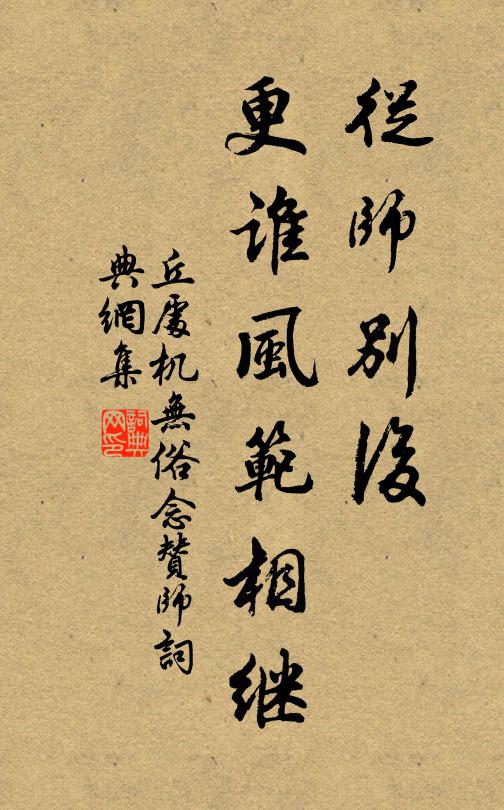 從師別後
更誰風範相继
丘處机無俗念贊師詞
典網集
詞典网印